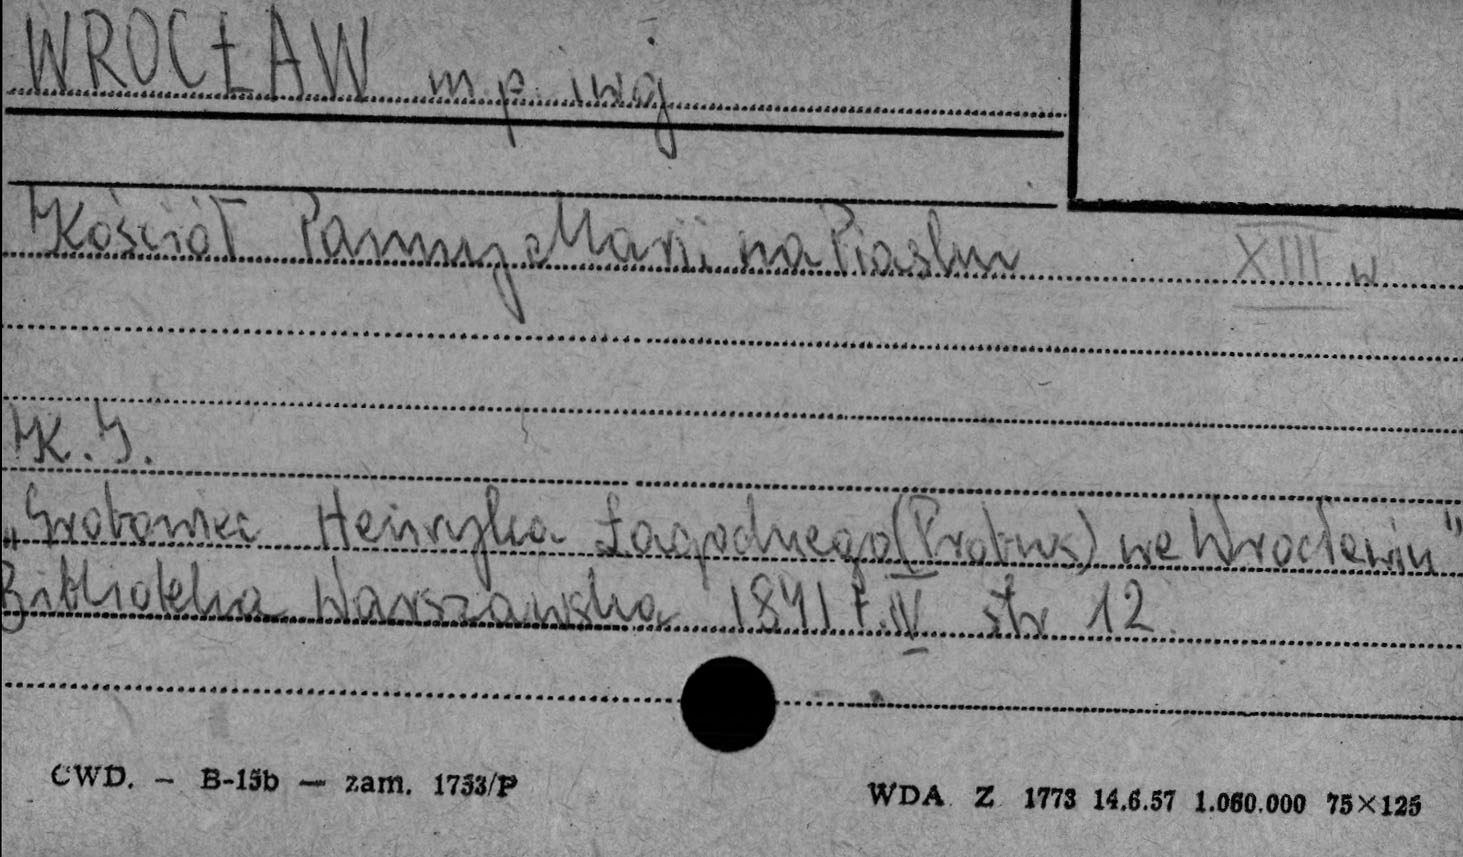 WROCŁAW m.p. i woj
Kościół Panny Marii na Piasku XIII w
K. J.
„Grobowiec Henryka Łagodnego (Probus) we Wrocławiu"
Biblioteka Warszawska 1841 t. IV str 12
CWD. — B-15b — zam. 1753/P
WDA Z 1773 14.6.57 1.060.000 75×125